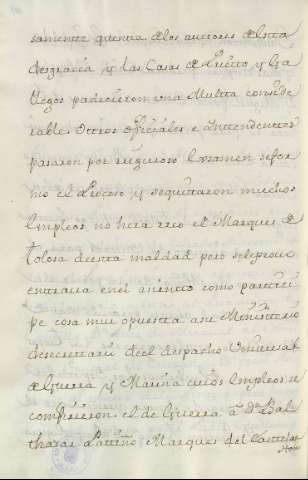 samente quenta delos autores de esta
desgracia, y las Casas de Puerto, y Ga
llegos padecieron una Multa conside
rable. Otros oficiales, e a intendentes
pasaron por riguroso Examen se for
mo el Proceso, y se quitaron muchos
Empleos no hera reo el Marques de
tolosa de esta maldad pero se le provo
entraua en el asiento como partici
pe cosa mui opuesta a su Ministerio
de secretario de el despacho Universal
de Guerra, y Marina cuios Empleos se
confirieron el de Guerra a Dn Bal
thasar Patiño Marques del Castelar